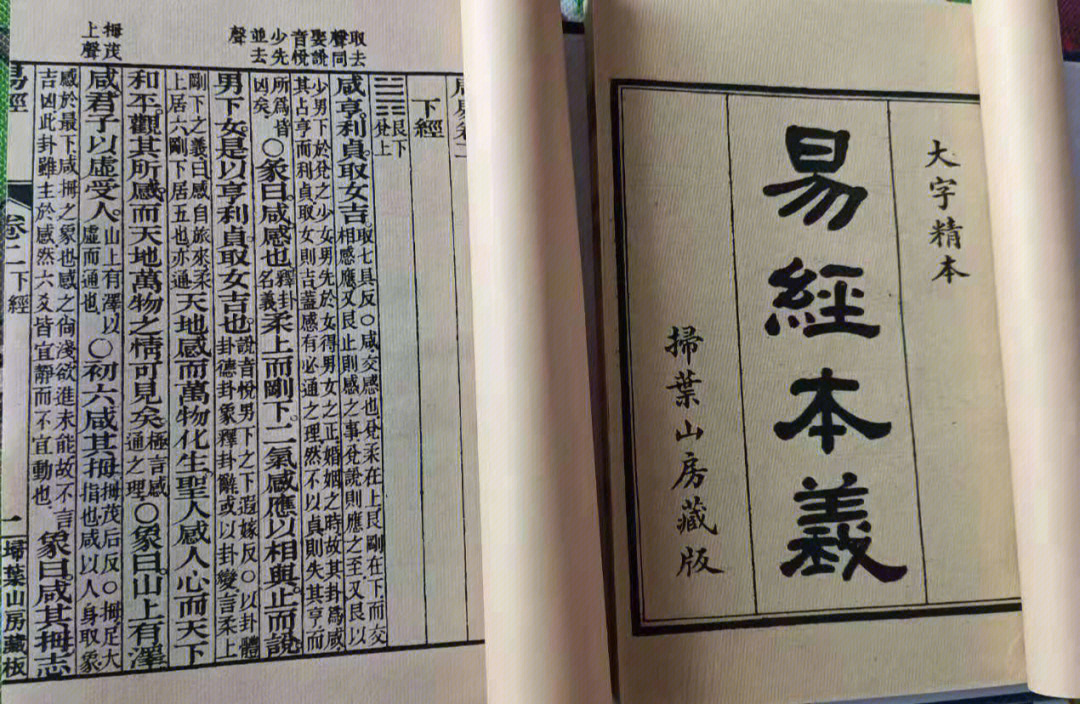 大字精本
易經本義
掃葉山房藏版
取去
聲同
娶說
音悅
少先
並去
聲
拇茂
上聲
下經
艮下
兌上
咸亨利貞取女吉取七具反○咸交感也兌柔在上艮剛在下而交
相感應又艮止則感之專兌說則應之至又艮以
少男下於兌之少女男先於女得男女之正婚姻之時故其卦爲咸
其占亨而利貞取女則吉蓋感有必通之理然不以貞則失其亨而
所爲皆
凶矣。○彖曰咸感也釋卦
名義柔上而剛下二氣感應以相與止而說
男下女是以亨利貞取女吉也說音悅男下之下遐嫁反○以卦體
卦德卦象釋卦辭或以卦變言柔上
剛下之義曰咸自旅來柔
上居六剛下居五也亦通天地感而萬物化生聖人感人心而天下
和平觀其所感而天地萬物之情可見矣極言感
通之理。○象曰山上有澤
咸君子以虛受人。山上有澤以
虛而通也○初六咸其拇拇茂后反○拇足大
指也咸以人身取象
感於最下咸拇之象也感之尚淺欲進未能故不言
吉凶此卦雖主於感然六爻皆宜靜而不宜動也象曰咸其拇志
易經 卷二下經 二 掃葉山房藏板